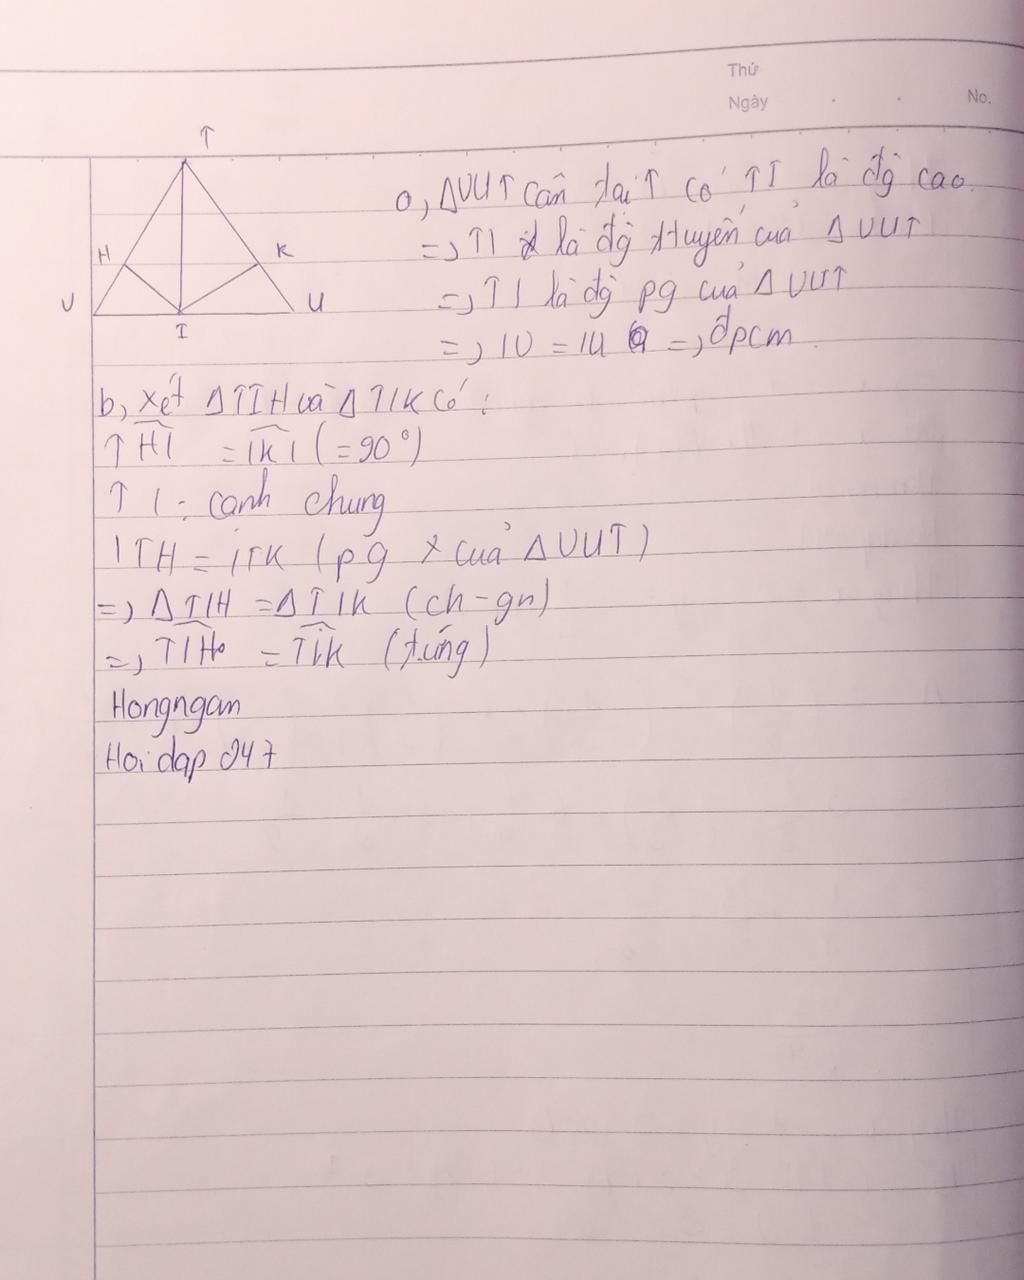 Thứ
Ngày
No.
T
H
K
V
U
I
a, ΔVUT cân tại T có TI là đg cao
=> TI là đg ttuyến của ΔVUT
=> TI là đg pg của ΔVUT
=> IV = IU => đpcm
b, xét ΔTIH và ΔTIK có:
THI = IKI (=90°)
TI: cạnh chung
ITH = ITK (pg của ΔVUT)
=> ΔTIH = ΔTIK (ch-gn)
=> TIH = TIK (t.ứng)
Hongngan
Hoidap 247